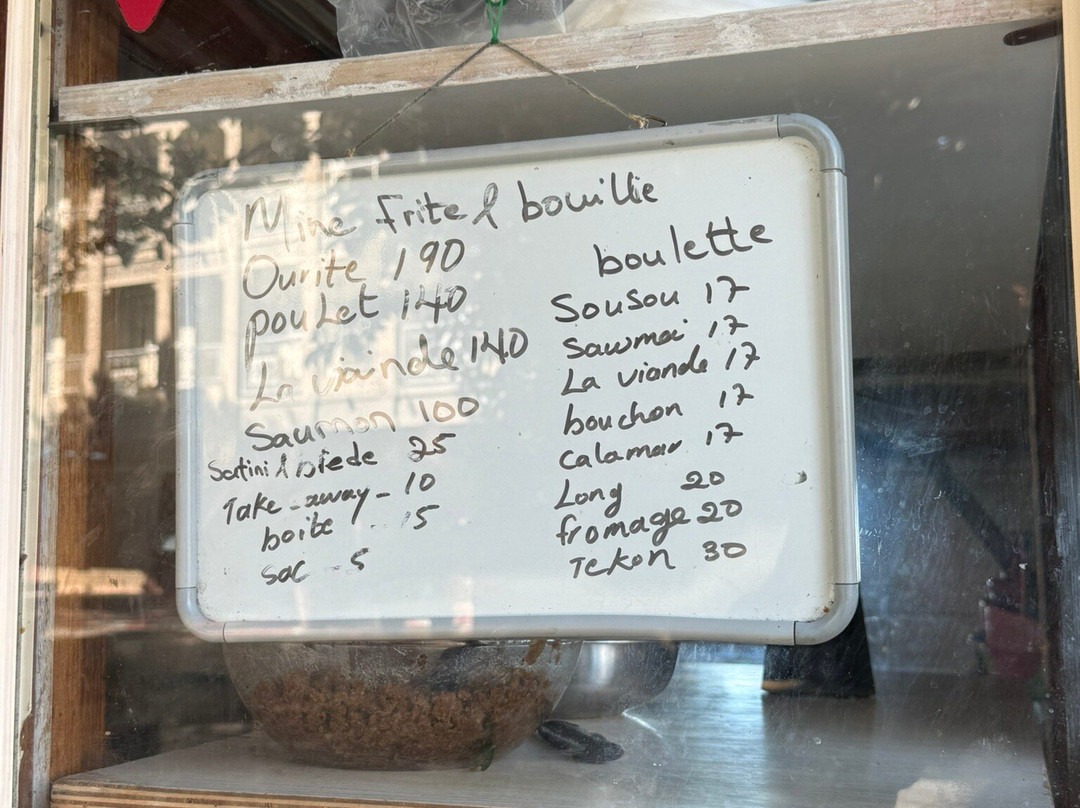 Mine frite & bouillie
Ourite 190
poulet 140
La viande 140
Saumon 100
Sartini & piede 25
Take - away - 10
boite - 15
sac - 5
boulette
Sousou 17
Sawmai 17
La viande 17
bouchon 17
calamar 17
Long 20
fromage 20
Tekon 30